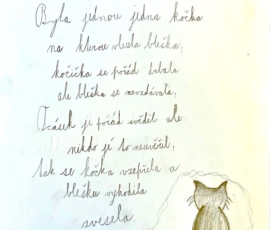 Byla jednou jedna kočka
na kterou vlezla bleška,
kočička se pořád drbala
ale bleška se nevzdávala,
Ocásek ji pořád svědil ale
nikdo jí to nevěřil,
tak se kočka vzepřela a
blešku vyhodila
zvesela.